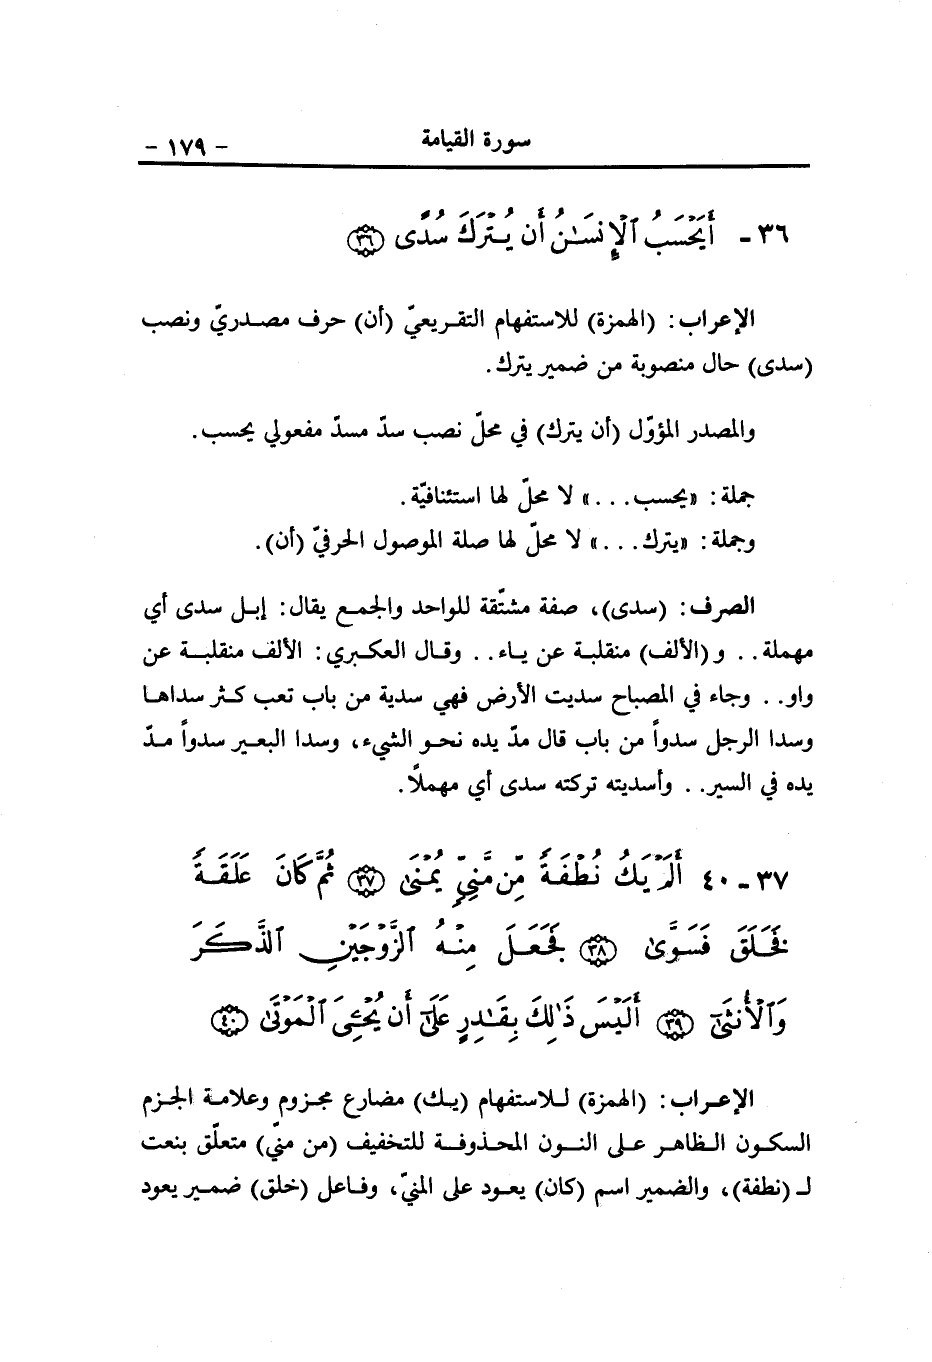 سورة القيامة - ١٧٩ -
٣٦ - أَيَحْسَبُ ٱلْإِنسَـٰنُ أَن يُتْرَكَ سُدًى ﴿٣٦﴾
الإعراب: (الهمزة) للاستفهام التقريعيّ (أن) حرف مصدريّ ونصب
(سدى) حال منصوبة من ضمير يترك.
والمصدر المؤوّل (أن يترك) في محلّ نصب سدّ مسدّ مفعولي يحسب.
جملة: «يحسب...» لا محلّ لها استئنافيّة.
وجملة: «يترك...» لا محلّ لها صلة الموصول الحرفيّ (أن).
الصرف: (سدى)، صفة مشتّقة للواحد والجمع يقال: إبل سدى أي
مهملة.. و(الألف) منقلبة عن ياء.. وقال العكبري: الألف منقلبة عن
واو.. وجاء في المصباح سديت الأرض فهي سدية من باب تعب كثر سداها
وسدا الرجل سدواً من باب قال مدّ يده نحو الشيء، وسدا البعير سدواً مدّ
يده في السير.. وأسديته تركته سدى أي مهملًا.
٣٧ - ٤٠ أَلَمْ يَكُ نُطْفَةً مِّن مَّنِىٍّ يُمْنَىٰ ﴿٣٧﴾ ثُمَّ كَانَ عَلَقَةً
فَخَلَقَ فَسَوَّىٰ ﴿٣٨﴾ فَجَعَلَ مِنْهُ ٱلزَّوْجَيْنِ ٱلذَّكَرَ
وَٱلْأُنثَىٰٓ ﴿٣٩﴾ أَلَيْسَ ذَٰلِكَ بِقَـٰدِرٍ عَلَىٰٓ أَن يُحْـِۧىَ ٱلْمَوْتَىٰ ﴿٤٠﴾
الإعراب: (الهمزة) للاستفهام (يك) مضارع مجزوم وعلامة الجزم
السكون الظاهر على النون المحذوفة للتخفيف (من منيّ) متعلّق بنعت
لـ (نطفة)، والضمير اسم (كان) يعود على المنيّ، وفاعل (خلق) ضمير يعود